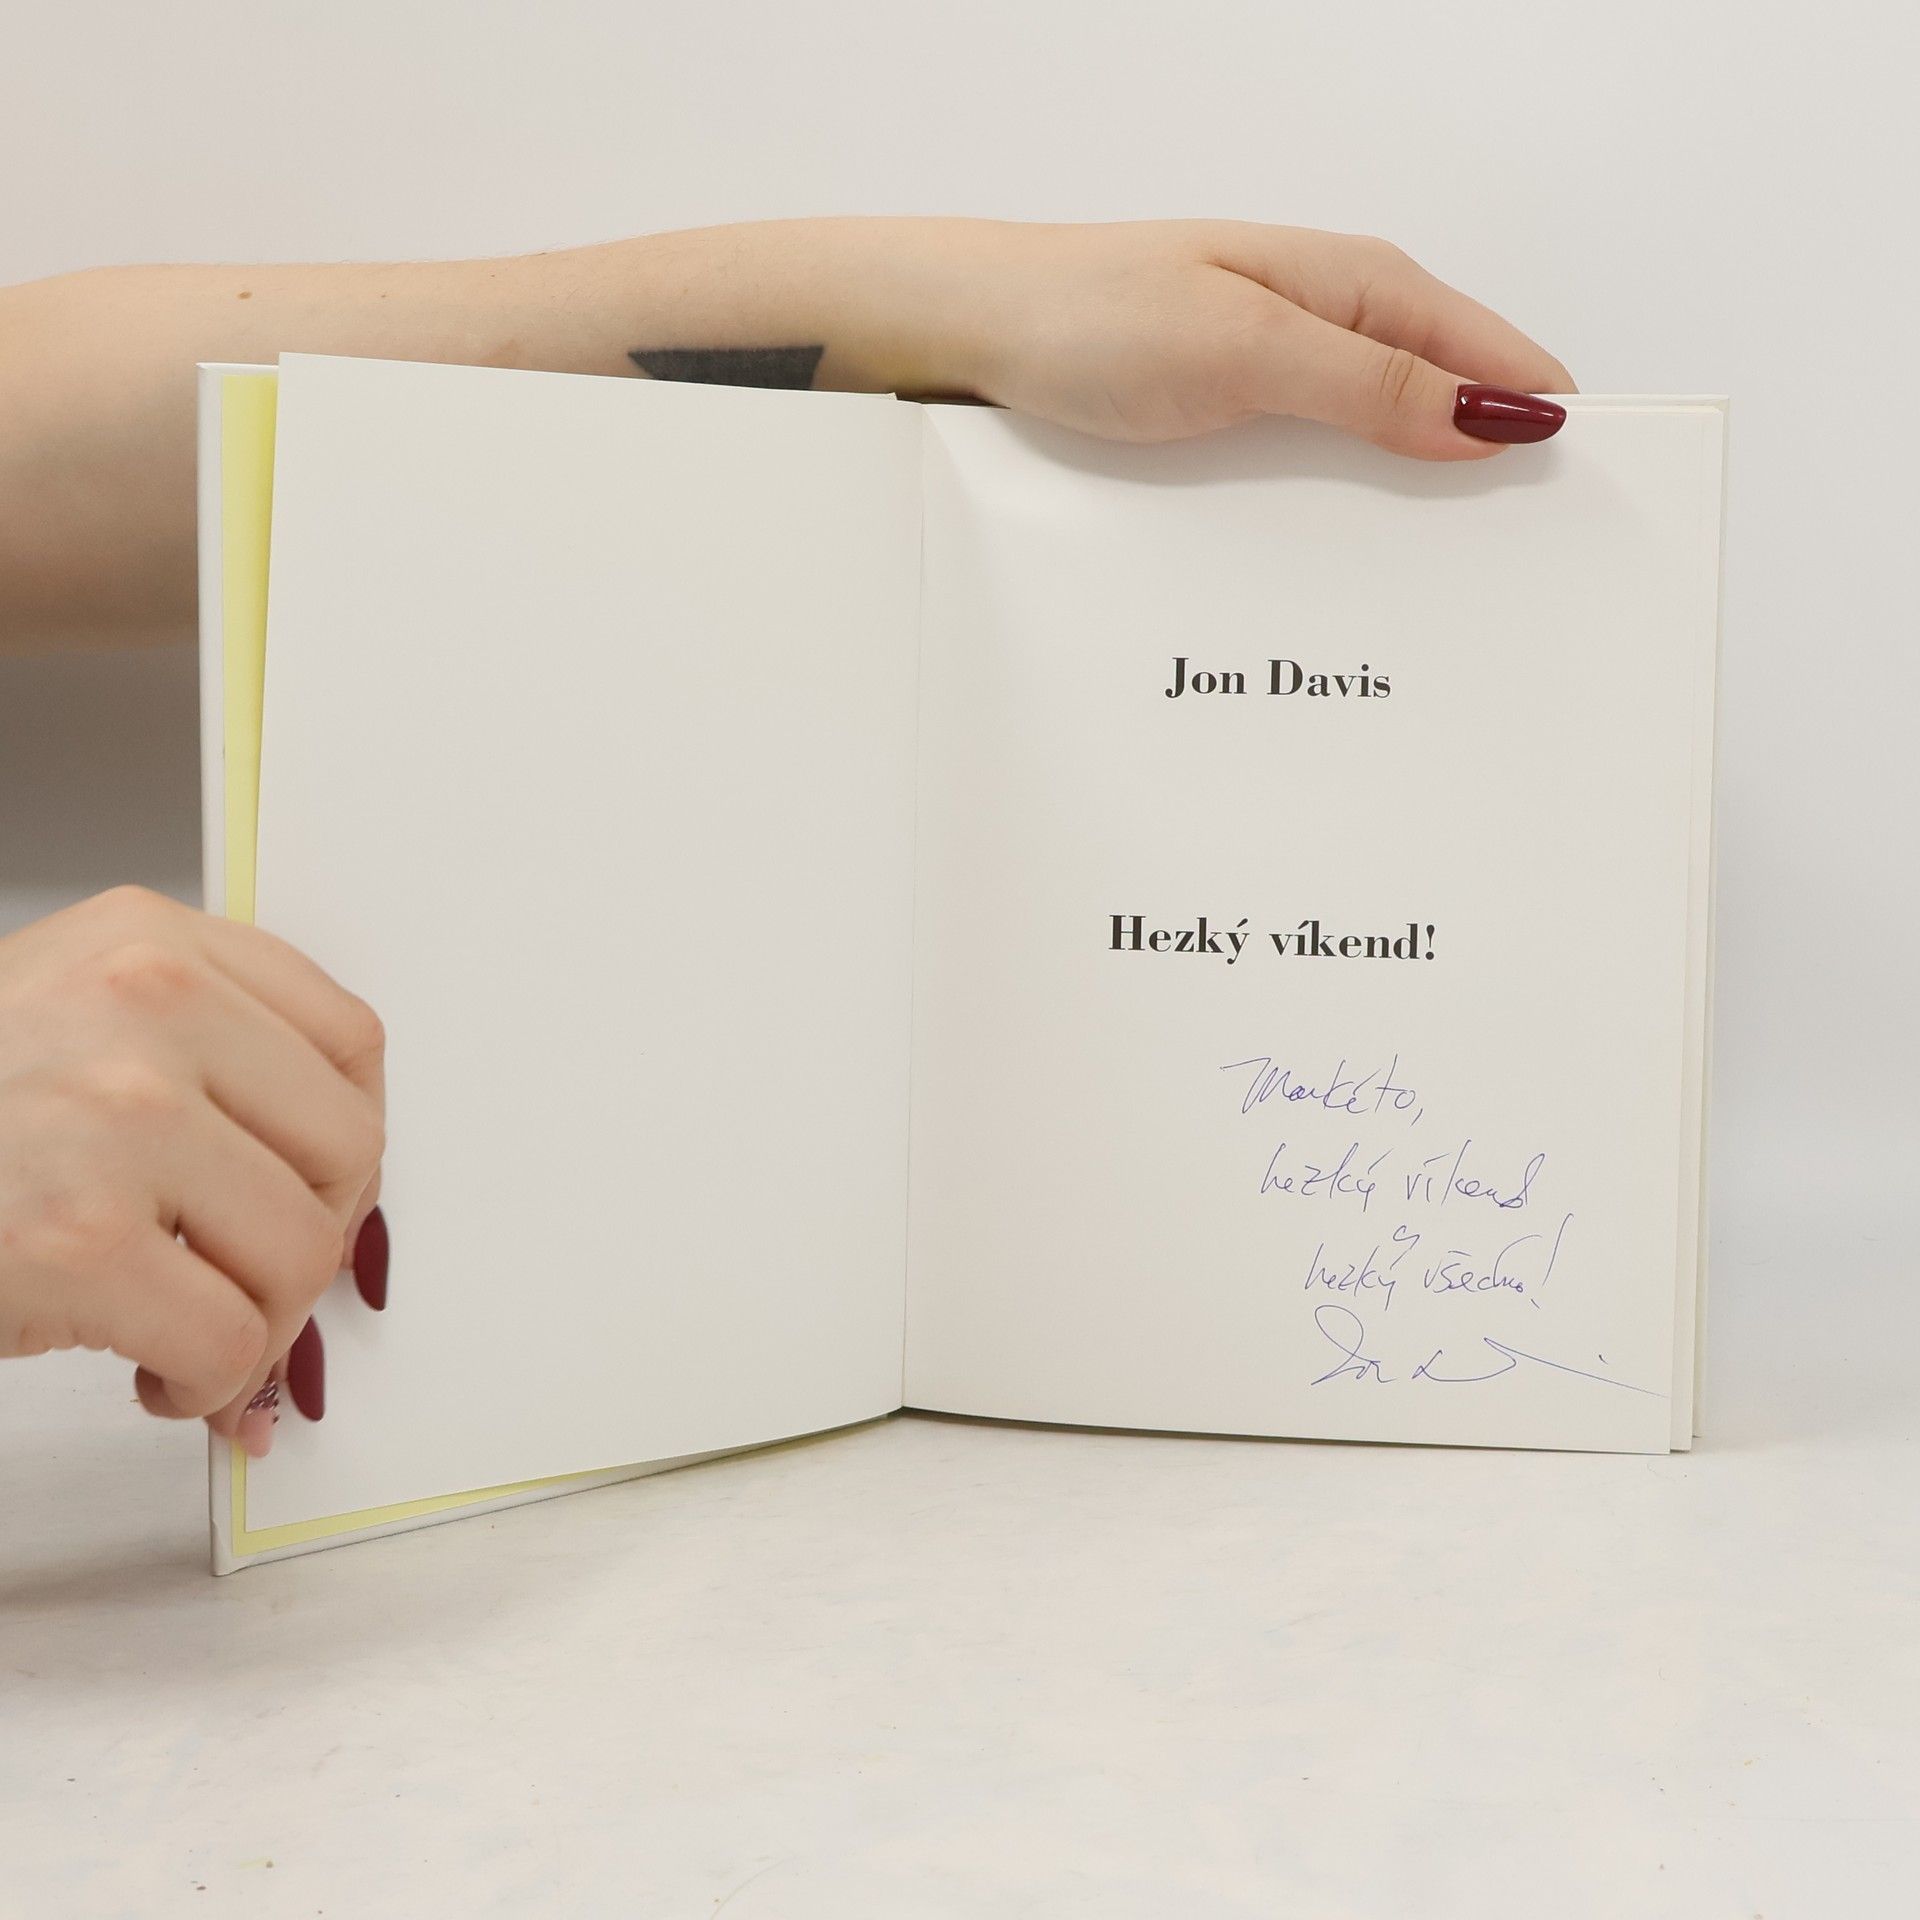 Jon Davis
Hezký víkend!
Markéto,
hezký víkend
a
hezký všechno!
Jon D